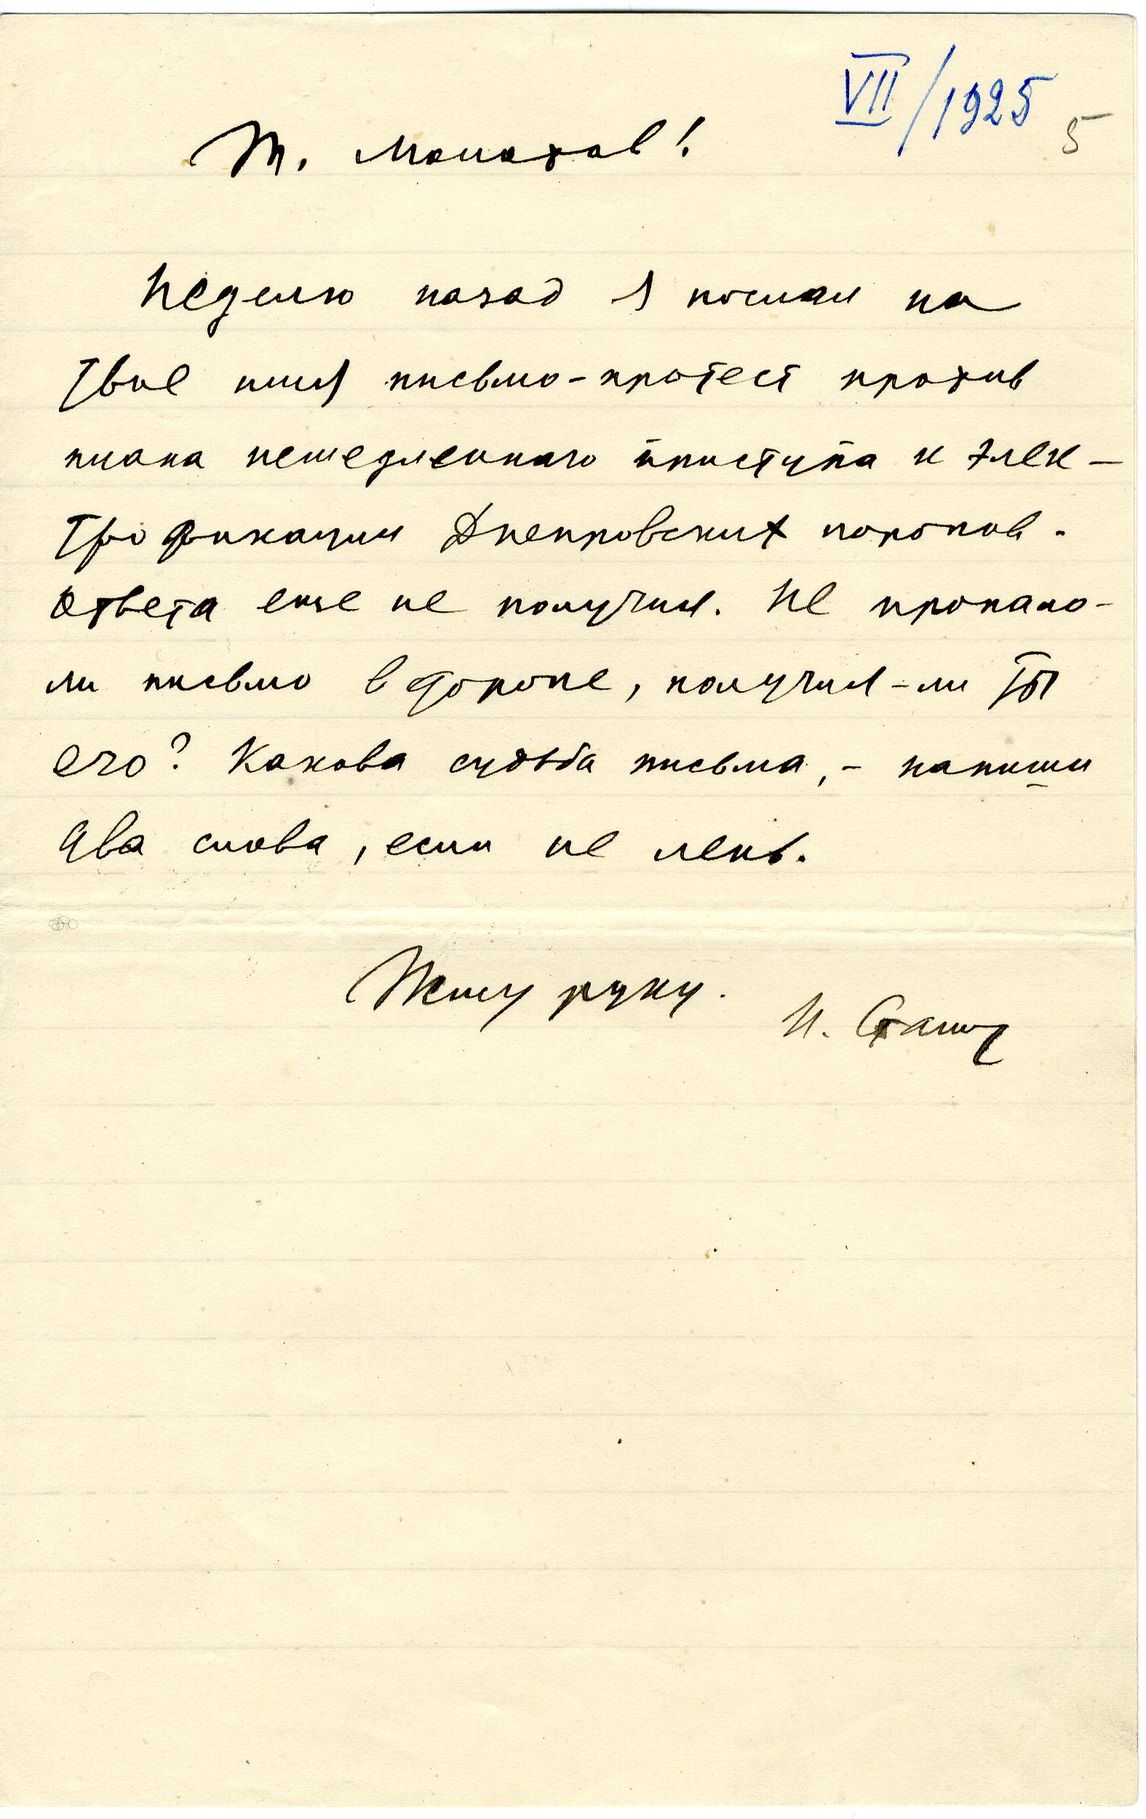 VII/1925
5
Т. Молотов!
Неделю назад я послал на
твое имя письмо-протест против
плана немедленного приступа к элек-
трофикации Днепровских порогов.
Ответа еще не получил. Не пропало-
ли письмо в дороге, получил-ли ты
его? Какова судьба письма, – напиши
два слова, если не лень.
Жму руку.
И. Сталин